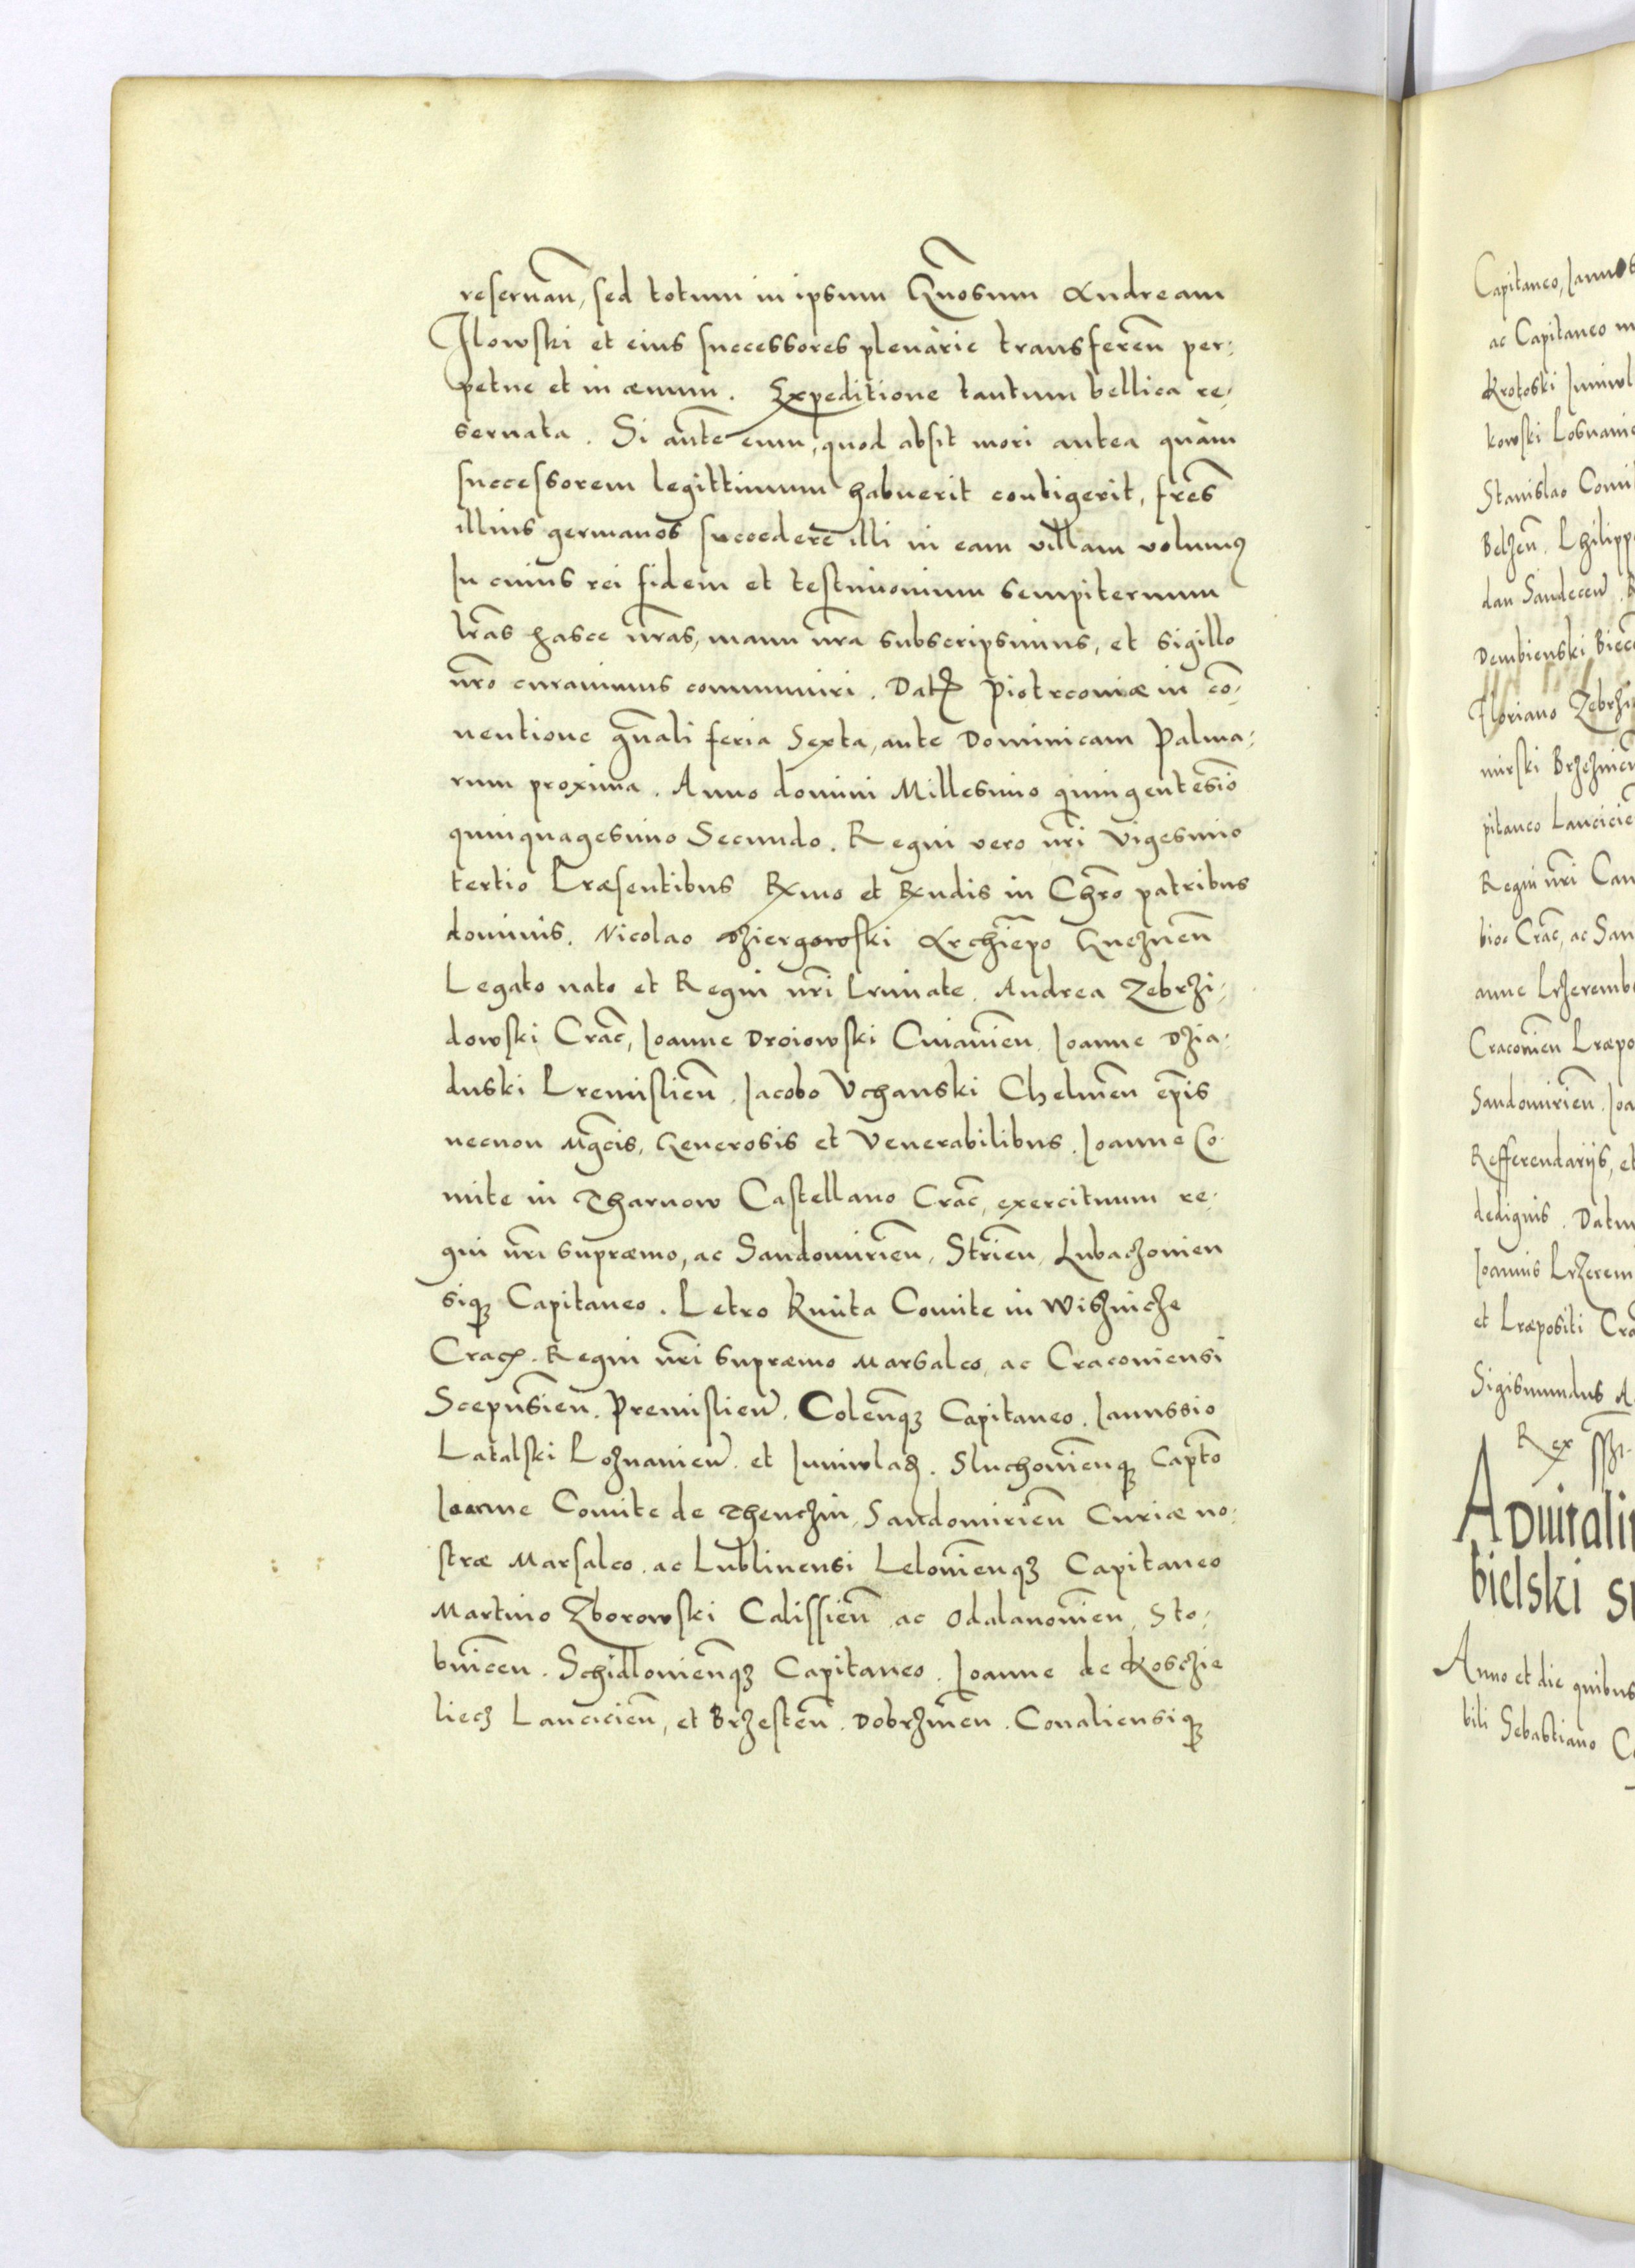 reseruan̄, sed totum in ipsum Gn̄osum Andream
Ilowski et eius successores plenàrie transferen̄ per-
petue et in æuum. Expeditione tantum bellica re-
seruata. Si aūte eum, quod absit mori antea quàm
successorem legittimum habuerit contigerit, fr̄es
illius germanos succedere illi in eam villam volumꝰ
In cuius rei fidem et testimonium sempiternum
lr̄as hasce nr̄as, manu nr̄a subscripsimus, et sigillo
nr̄o curauimus communiri. Datꝭ Piotrcouiæ in cō-
uentione gn̄ali feria Sexta, ante Dominicam Palma-
rum proxima. Anno domini Millesimo quingentesīo
quinquagesimo Secundo. Regni vero nr̄i vigesimo
tertio Præsentibus Rx̄mo et Rx̄ndis in Chr̄o patribus
dominis. Nicolao Dziergowski Archiēpo Gneznen̄
Legato nato et Regni nr̄i Primate. Andrea Zebrzi-
dowski Crac̄, Ioanne Droiowski Cuiauien̄. Ioanne Dzia-
duski Premislien̄. Iacobo Vchanski Chelmen̄ ep̄is
necnon Mḡcis, Generosis et Venerabilibus. Ioanne Co-
mite in Tharnow Castellano Crac̄, exercituum re-
gni nr̄i supræmo, ac Sandomirien̄, Strien̄, Lubaczouien
siqꝫ Capitaneo. Petro Kmita Comite in Wisznicze
Cracꝭ. Regni nr̄i supræmo Marsalco, ac Cracouiensi
Scepusien̄. Premislien̄. Colen̄qꝫ Capitaneo. Ianussio
Latalski Poznanien̄. et Iuniwladꝭ. Sluchouien̄qꝫ Capt̄o
Ioanne Comite de Thenczin, Sandomirien̄ Curiæ no-
stræ Marsalco. ac Lublinensi Lelouien̄qꝫ Capitaneo
Martino Zborowski Calissien̄ ac Odalanouien̄, Sto-
bnicen̄. Schidlouien̄qꝫ Capitaneo. Ioanne de Koscie
liecz Lancicien̄, et Brzesten̄. Dobrzinen̄. Conaliensiqꝫ
Capitaneo,
ac Capitaneo
Krotoski Iuniwl
kowski Posnanie
Stanislao Comi
Belzen̄. Philipp
dan Sandecen̄.
Dembienski Biecē
Floriano Zebrzi
mirski Brzezinen̄
pitaneo Lancicie
Regni nr̄i Can
bioc Crac̄, ac San
anne Przeremb
Cracouien̄ Præpo
Sandomirien̄. Ioa
Refferendarijs, et
dedignis. Datu
Ioannis Przerem
et Præpositi Cra
Sigismundus A
Rex
Aduitali
bielski s
Anno et die quibus
bili Sebastiano C